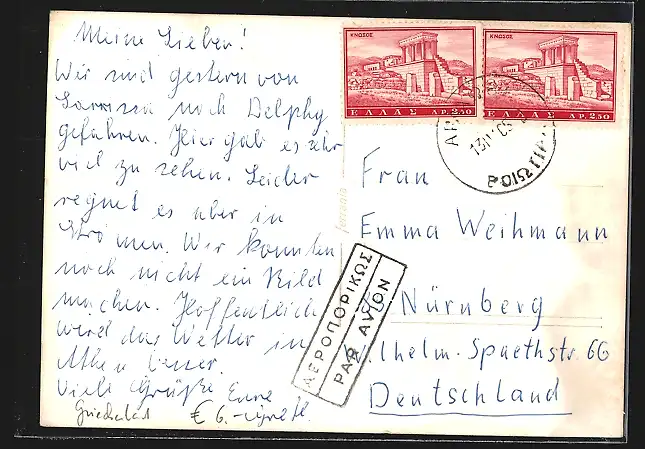 Meine Lieben!
Wir sind gestern von
Larissa nach Delphy
gefahren. Hier gab es sehr
viel zu sehen. Leider
regnet es aber in
Strömen. Wir konnten
noch nicht ein Bild
machen. Hoffentlich
wird das Wetter in
Athen besser.
Viele Grüße Eure
Griechenland € 6.-
ΚΝΩΣΟΣ
ΕΛΛΑΣ ΔΡ. 2,50
ΚΝΩΣΟΣ
ΕΛΛΑΣ ΔΡ. 2,50
Frau
Emma Weihmann
Nürnberg
ilhelm-Spaethstr. 66
Deutschland
ΑΕΡΟΠΟΡΙΚΩΣ
PAR AVION